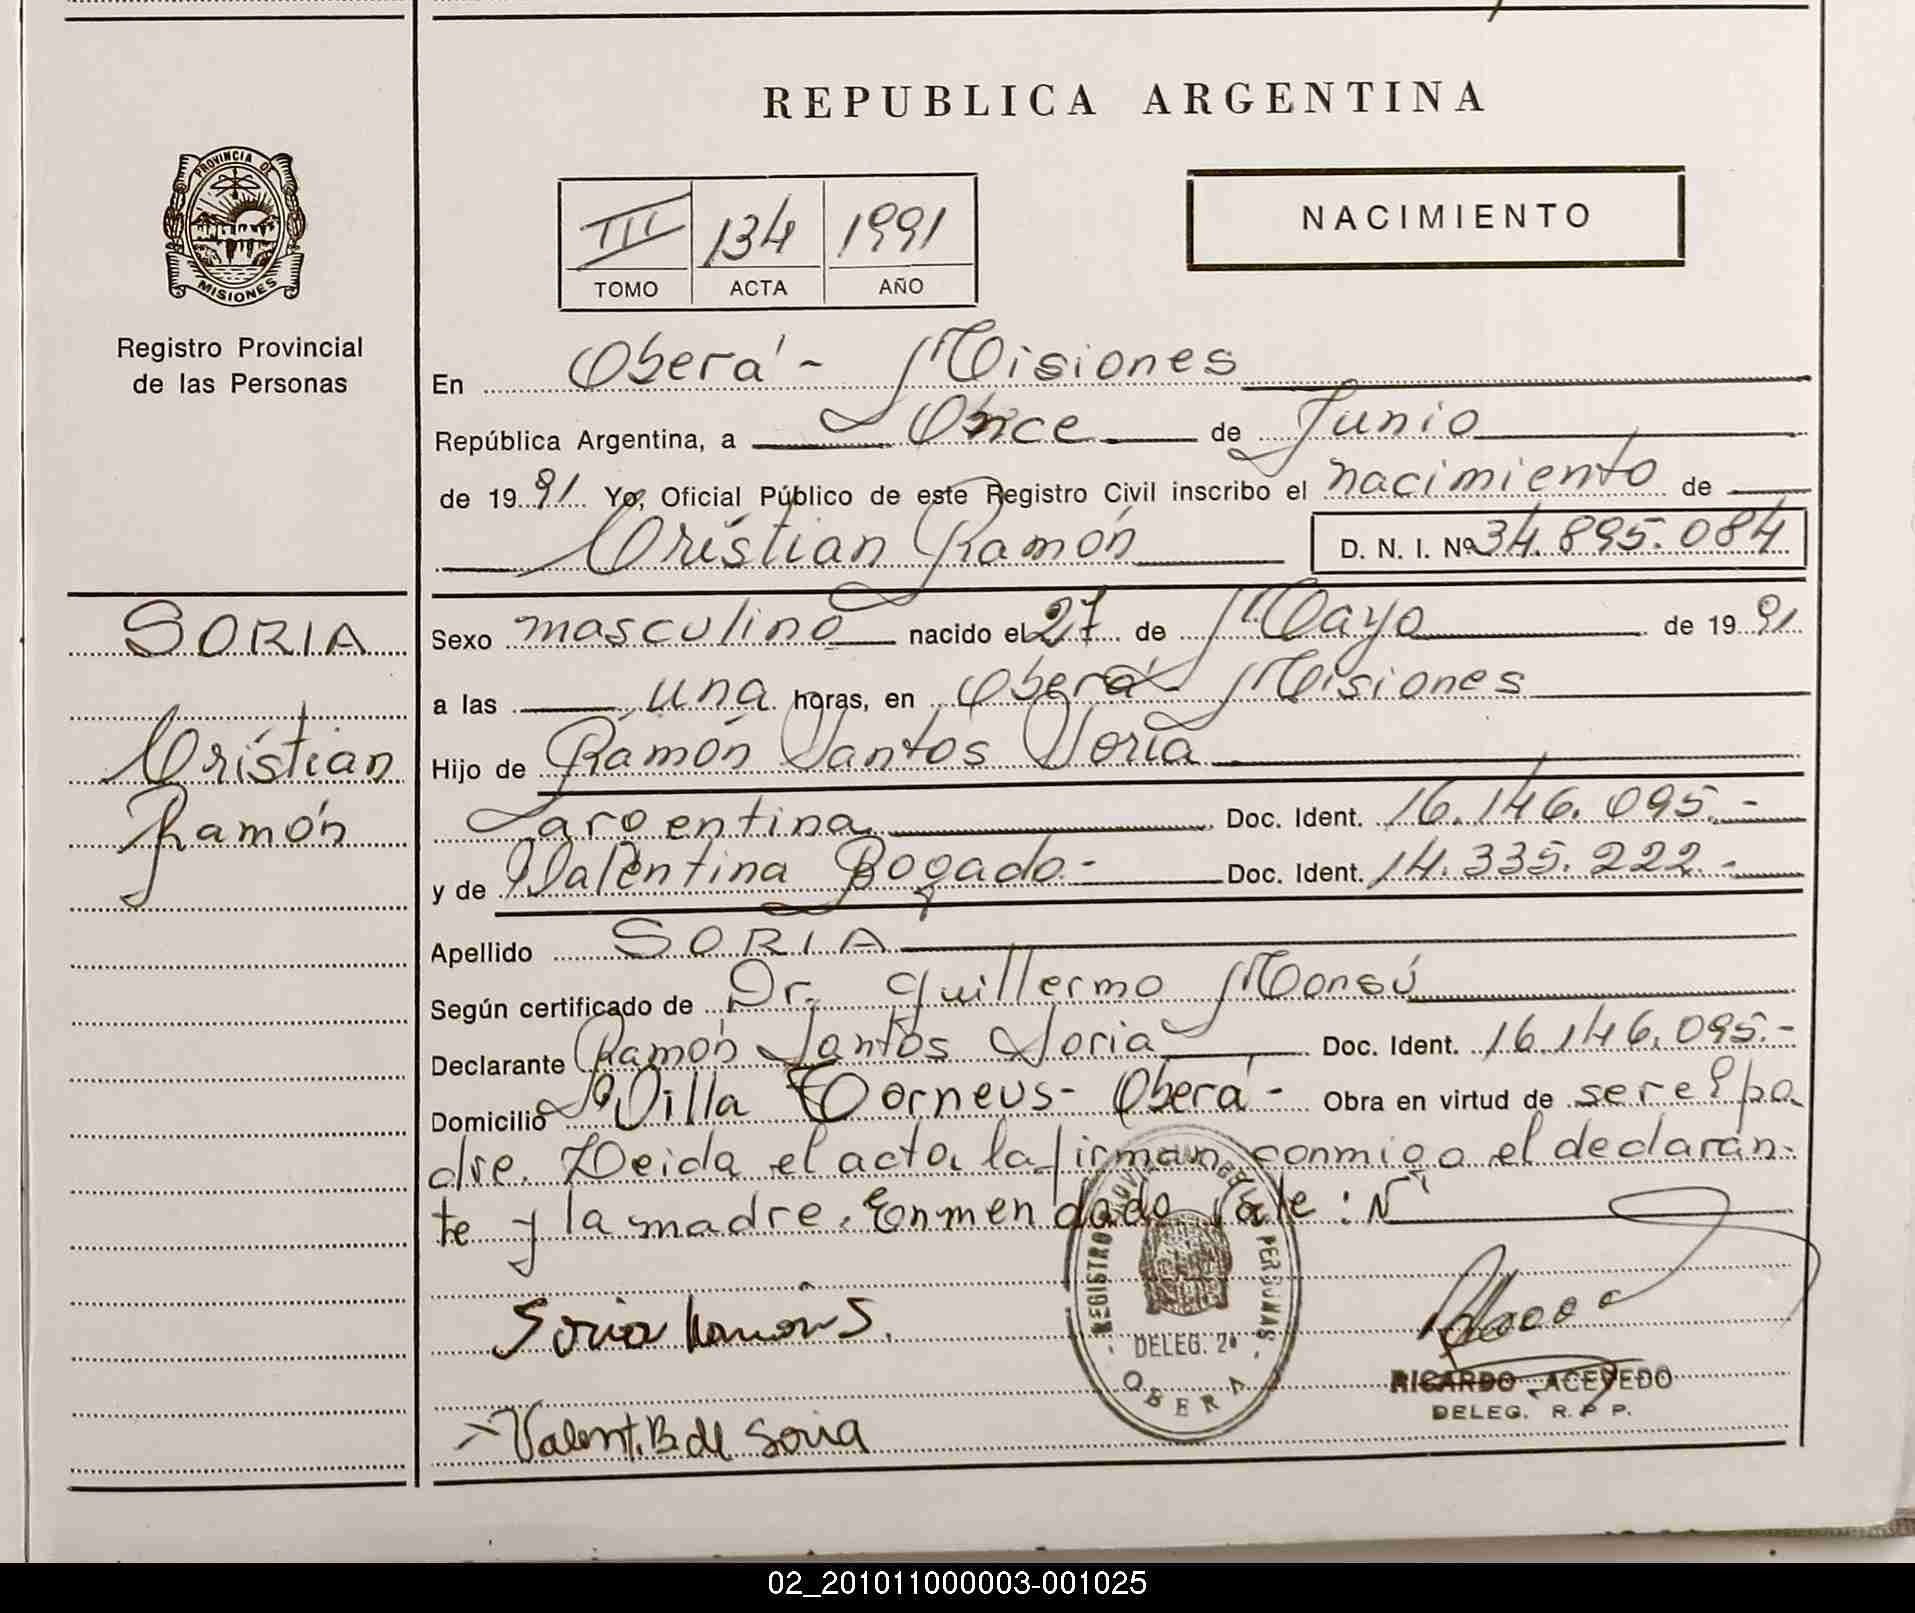 REPUBLICA ARGENTINA
PROVINCIA DE
MISIONES
Registro Provincial
de las Personas
III 134 1991
TOMO ACTA AÑO
NACIMIENTO
En Oberá - Misiones
República Argentina, a Once de Junio
de 19 91 Yo, Oficial Público de este Registro Civil inscribo el nacimiento de
Cristian Ramón D. N. I. Nº 34.895.084
SORIA
Cristian
Ramón
Sexo masculino nacido el 27 de Mayo de 19 91
a las una horas, en Oberá - Misiones
Hijo de Ramón Santos Soria
argentina Doc. Ident. 16.146.095.-
y de Valentina Bogado - Doc. Ident. 14.335.222.-
Apellido SORIA
Según certificado de Dr. Guillermo Monsú
Declarante Ramón Santos Soria Doc. Ident. 16.146.095.-
Domicilio Villa Torneus - Oberá - Obra en virtud de ser el pa
dre. Leida el acta, la firman conmigo el declaran-
te y la madre. Enmendado Vale: N
Soria Ramón S.
Valent. B. de Soria
REGISTRO PROVINCIAL DE LAS PERSONAS
DELEG. 2ª
OBERA
RICARDO ACEVEDO
DELEG. R. P P.
02_201011000003-001025